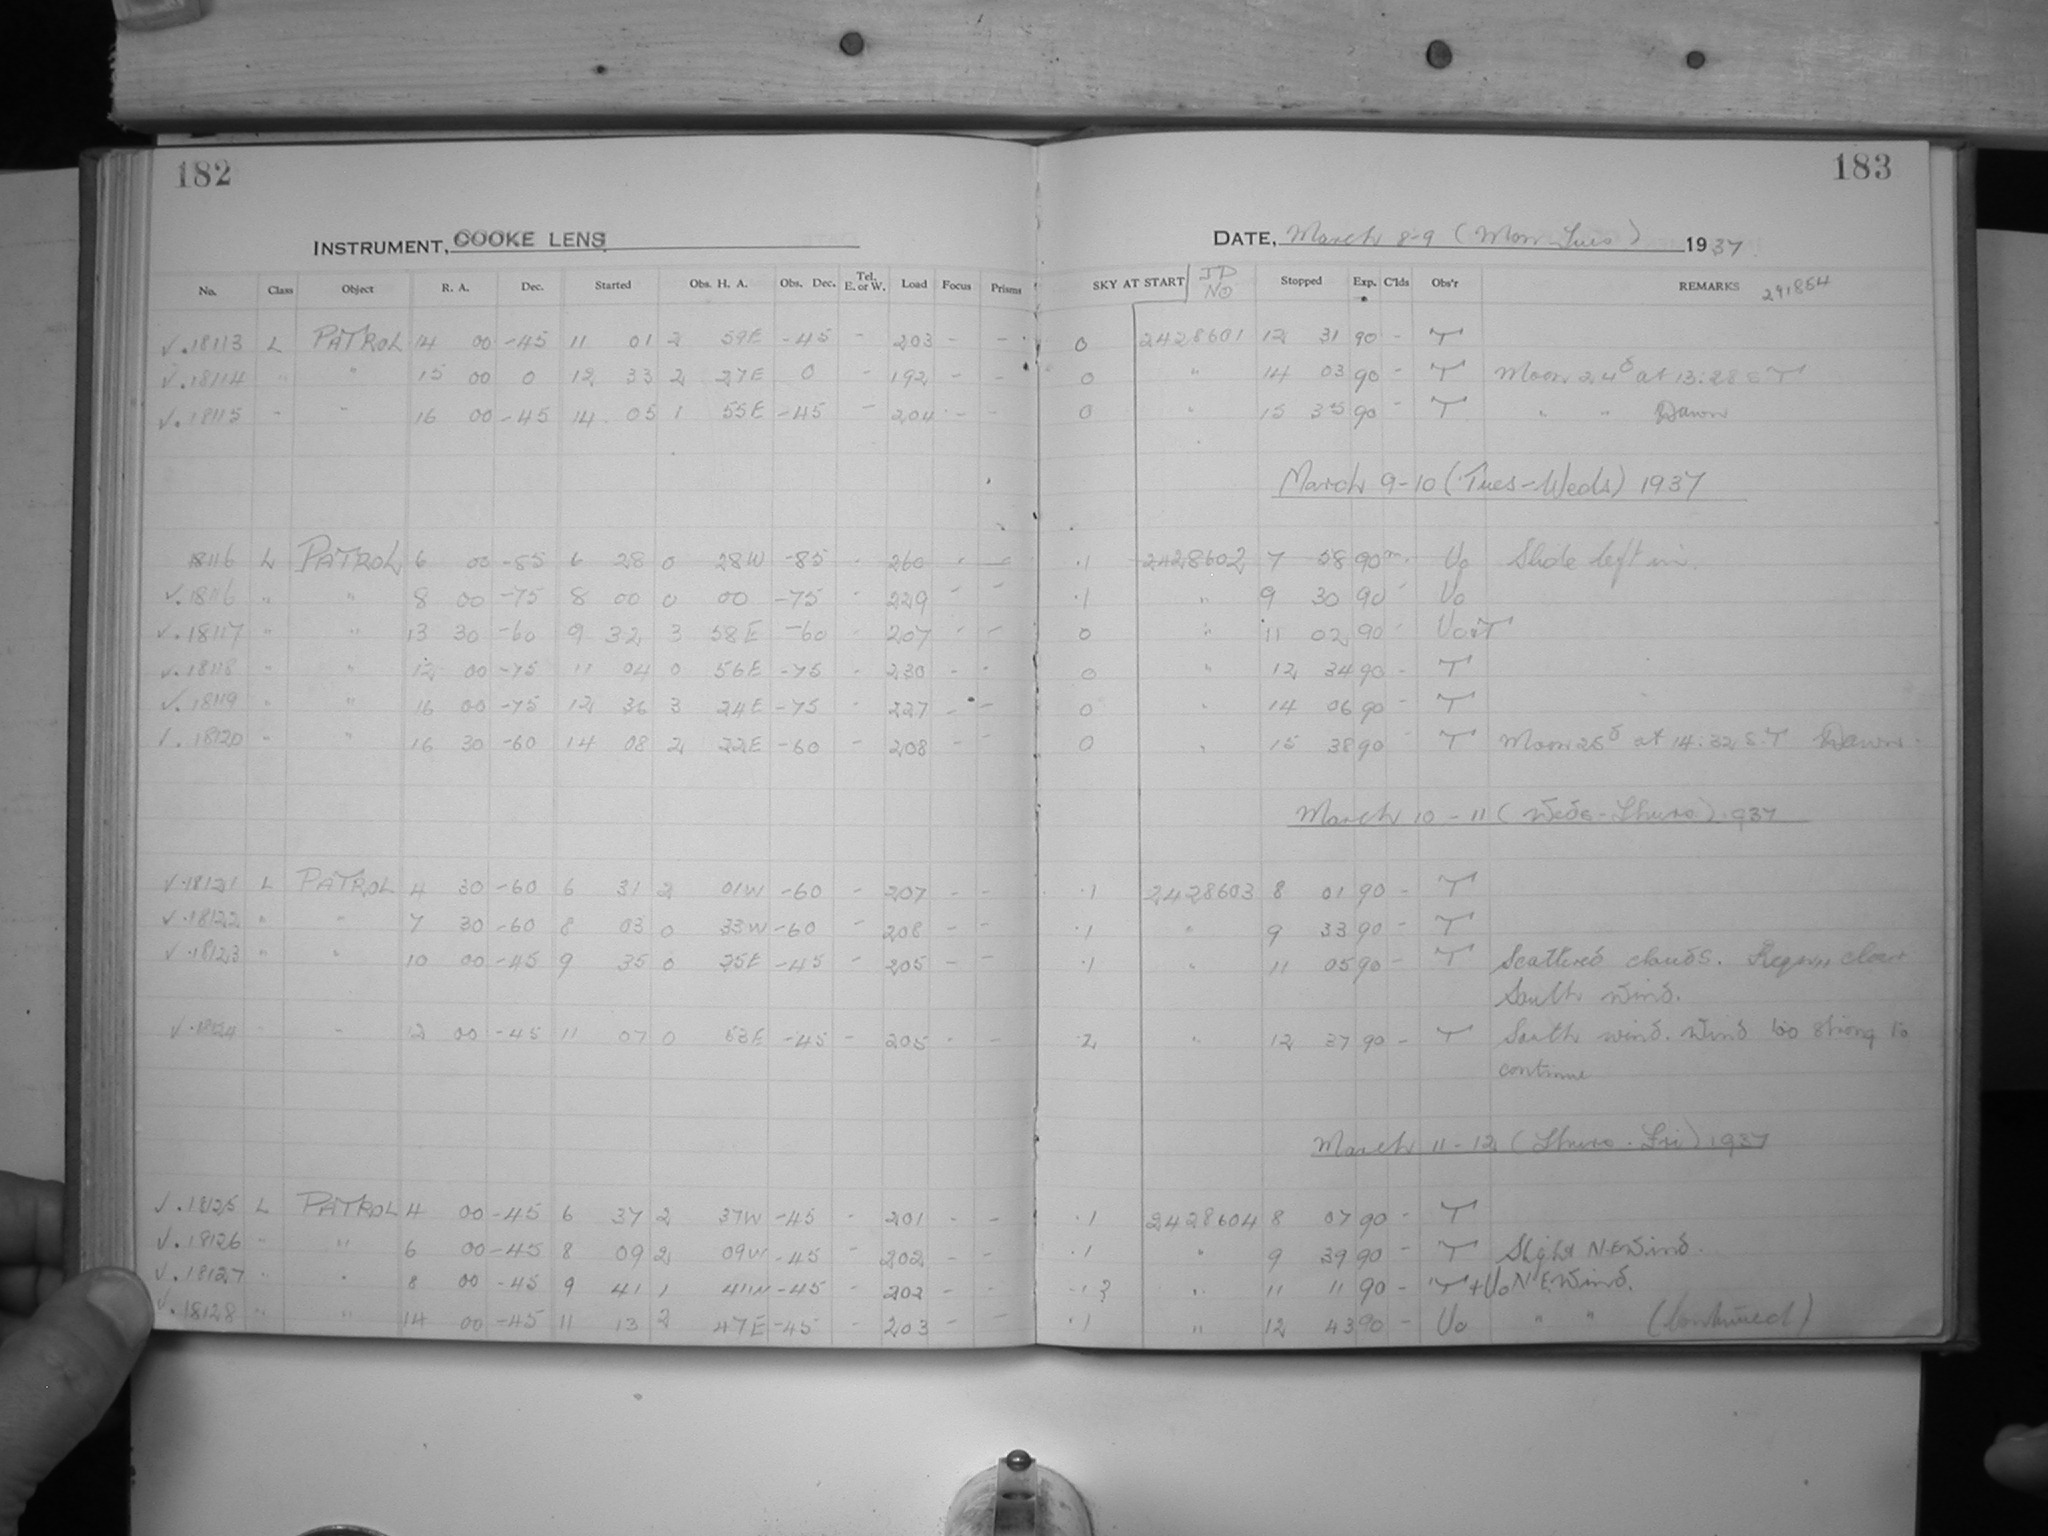 182
183
INSTRUMENT, COOKE LENS
DATE, March 8-9 (Mon-Tues) 1937
No. Class Object R. A. Dec. Started Obs. H. A. Obs. Dec. Tel. E. or W. Load Focus Prisms SKY AT START JD NO Stopped Exp. C'lds Obs'r REMARKS 291854
√.18113 L PATROL 14 00 -45 11 01 2 59E -45 - 203 - - 0 2428601 12 31 90 - T
√.18114 " " 15 00 0 12 33 2 27E 0 - 192 - - 0 " 14 03 90 - T Moon 24d at 13:28 ST
√.18115 " " 16 00 -45 14 05 1 55E -45 - 204 - - 0 " 15 35 90 - T " " Dawn
March 9-10 (Tues-Weds) 1937
18116 L PATROL 6 00 -85 6 28 0 28W -85 - 260 - - .1 2428602 7 58 90m. Vo Slide left in.
√.18116 " " 8 00 -75 8 00 0 00 -75 - 229 - - .1 " 9 30 90 - Vo
√.18117 " " 13 30 -60 9 32 3 58E -60 - 207 - - 0 " 11 02 90 - Vo+T
√.18118 " " 12 00 -75 11 04 0 56E -75 - 230 - - 0 " 12 34 90 - T
√.18119 " " 16 00 -75 12 36 3 24E -75 - 227 - - 0 " 14 06 90 - T
√.18120 " " 16 30 -60 14 08 2 22E -60 - 208 - - 0 " 15 38 90 - T Moon 25d at 14:32 S.T Dawn.
March 10-11 (Weds-Thurs) 1937
√.18121 L PATROL 4 30 -60 6 31 2 01W -60 - 207 - - .1 2428603 8 01 90 - T
√.18122 " " 7 30 -60 8 03 0 33W -60 - 208 - - .1 " 9 33 90 - T
√.18123 " " 10 00 -45 9 35 0 25E -45 - 205 - - .1 " 11 05 90 - T Scattered clouds. Region clear
South wind.
√.18124 - 12 00 -45 11 07 0 53E -45 - 205 - - .2 " 12 37 90 - T South wind. Wind too strong to
continue
March 11-12 (Thurs-Fri) 1937
√.18125 L PATROL 4 00 -45 6 37 2 37W -45 - 201 - - .1 2428604 8 07 90 - T
√.18126 " " 6 00 -45 8 09 2 09W -45 - 202 - - .1 " 9 39 90 - T Slight N.E Wind.
√.18127 " " 8 00 -45 9 41 1 41W -45 - 202 - - .1? " 11 11 90 - T+Vo N.E. Wind.
√.18128 " " 14 00 -45 11 13 2 47E -45 - 203 - - .1 " 12 43 90 - Vo " " (Continued)